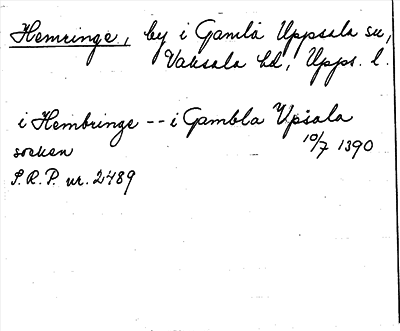 Hemringe, by i Gamla Uppsala sn,
Vaksala hd, Upps. l.
i Hembringe -- i Gambla Upsala
socken 10/7 1390
S.R.P. nr. 2489